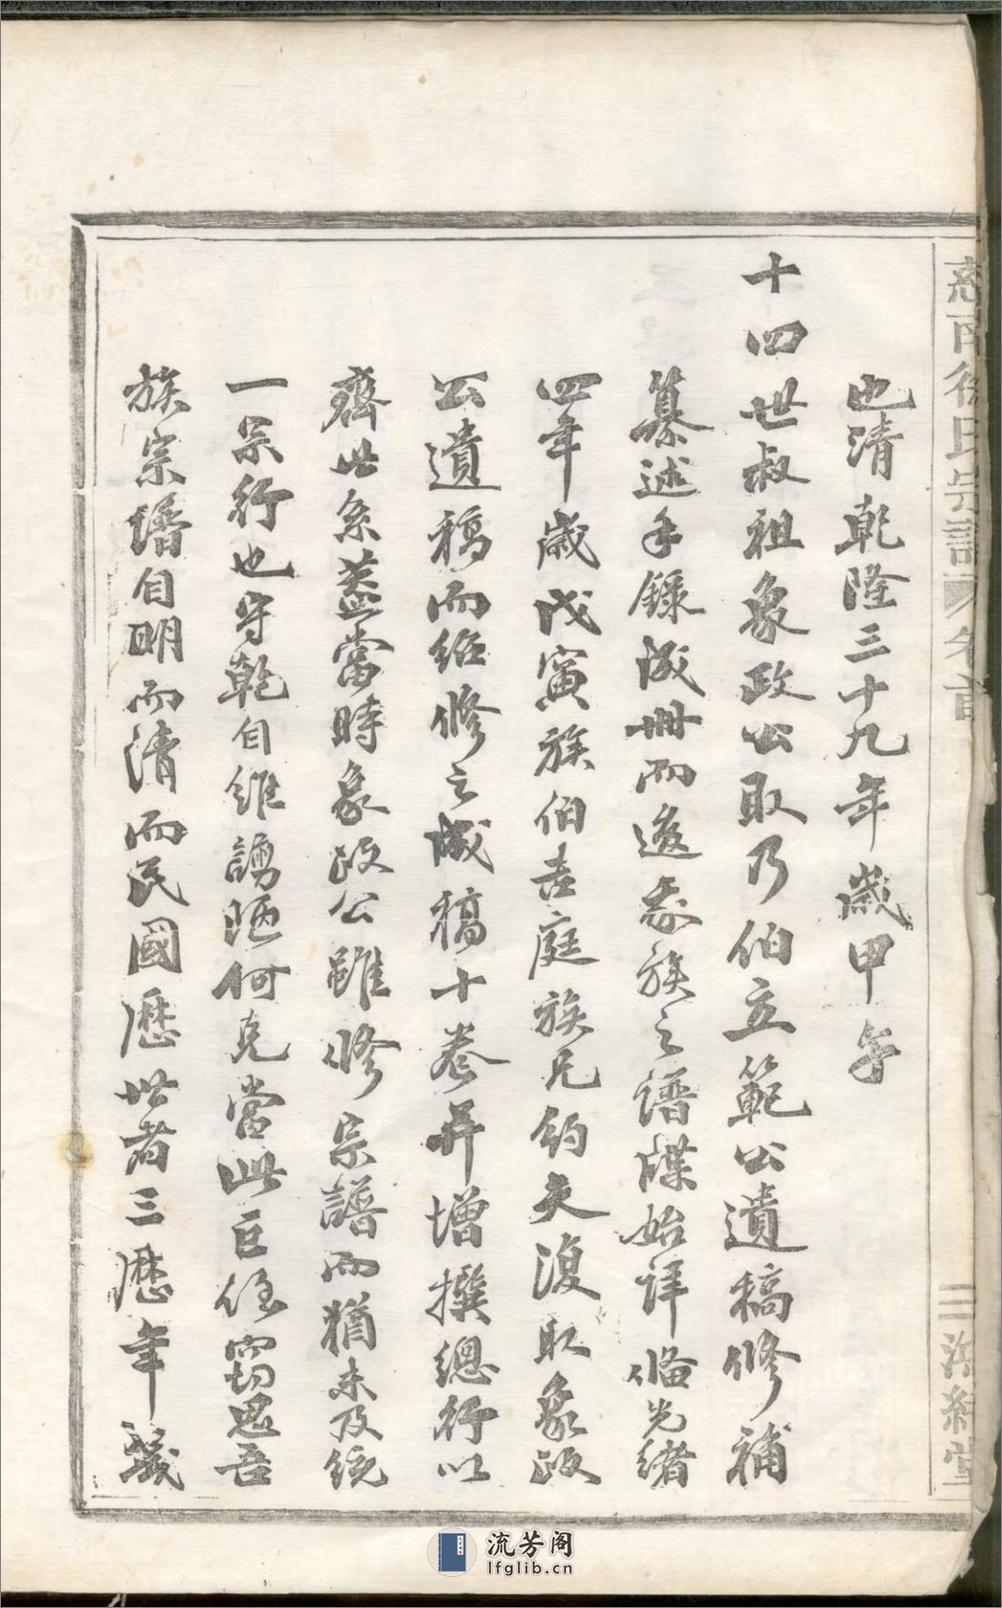 慈南徐氏宗譜 卷首 三 濟緒堂
也清乾隆三十九年歲甲午
十四世叔祖象政公取乃伯立範公遺稿修補
纂述手錄成冊而邃我族之譜牒始詳備光緒
四年歲戊寅族伯吉庭族兄鈞夫復取象政
公遺稿而紹修之成稿十卷并增撰總行以
齊世系蓋當時象政公雖修宗譜而猶未及統
一宗行也守乾自維謭陋何克當此巨任竊思吾
族宗譜自明而清而民國歷世者三歷年幾
流芳阁
lfglib.cn